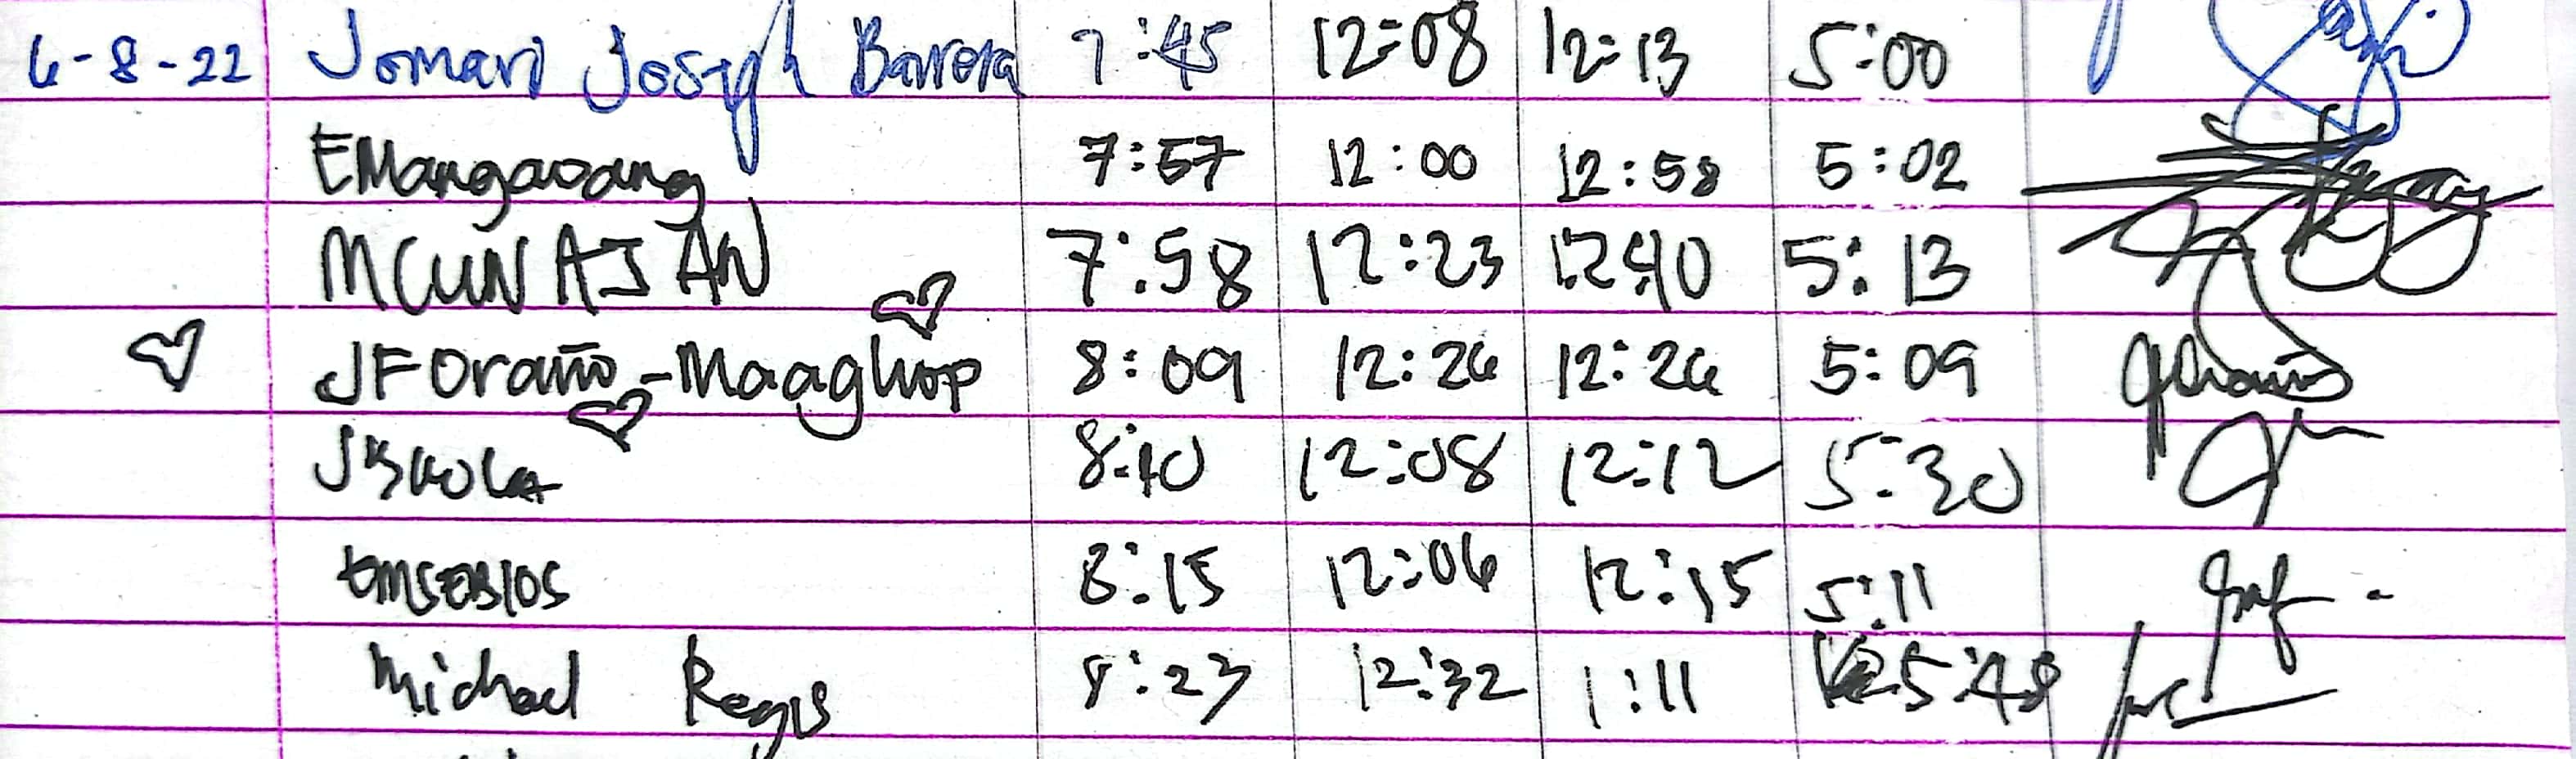 6-8-22 Jomari Joseph Barrera 7:45 12:08 12:13 5:00
EMangaoang 7:57 12:00 12:58 5:02
MCUNAJAN 7:58 12:23 12:40 5:13
JFOraño-Maaghop 8:09 12:26 12:26 5:09
8:10 12:08 12:12 5:30
8:15 12:06 12:15 5:11
Michael Regis 8:23 12:32 1:11 5:48